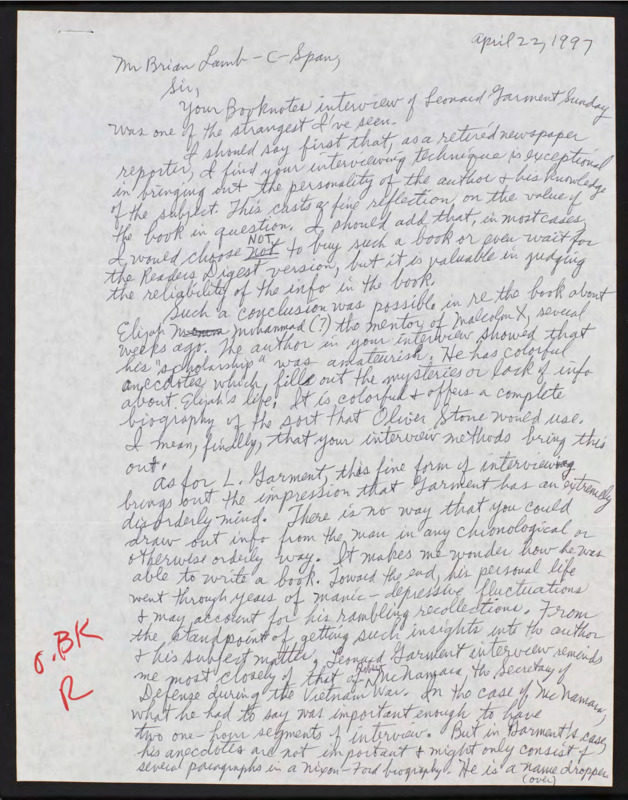 April 22, 1997
Mr Brian Lamb - C-Span,
Sir,
Your Booknotes interview of Leonard Garment Sunday
was one of the strangest I've seen.
I should say first that, as a retired newspaper
reporter, I find your interviewing technique is exceptional
in bringing out the personality of the author & his knowledge
of the subject. This casts a fine reflection on the value of
the book in question. I should add that, in most cases,
NOT
I would choose not to buy such a book or even wait for
the Readers Digest version, but it is valuable in judging
the reliability of the info in the book.
Such a conclusion was possible in re the book about
Elijah Mohammad (?) the mentor of Malcolm X, several
weeks ago. The author in your interview showed that
his "scholarship" was amateurish. He has colorful
anecdotes which fill out the mysteries or lack of info
about Elijah's life. It is colorful & offers a complete
biography of the sort that Oliver Stone would use.
I mean, finally, that your interview methods bring this
out.
As for L. Garment, this fine form of interviewing
brings out the impression that Garment has an extremely
disorderly mind. There is no way that you could
draw out info from the man in any chronological or
otherwise orderly way. It makes me wonder how he was
able to write a book. Toward the end, his personal life
went through years of manic-depressive fluctuations
& may account for his rambling recollections. From
the standpoint of getting such insights into the author
& his subject matter, Leonard Garment interview reminds
me most closely of that of Robert McNamara, the Secretary of
Defense during the Vietnam War. In the case of McNamara,
what he had to say was important enough to have
two one-hour segments of interview. But in Garment's case,
his anecdotes are not important & might only consist of
several paragraphs in a Nixon-Ford biography. He is a name dropper
(over)
σ. BK
R